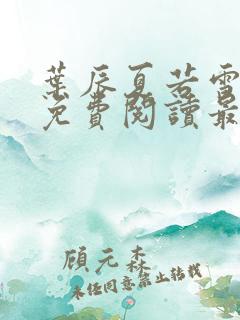 葉辰夏若雪
免費閱讀最
顧元森
未經同意禁止轉載